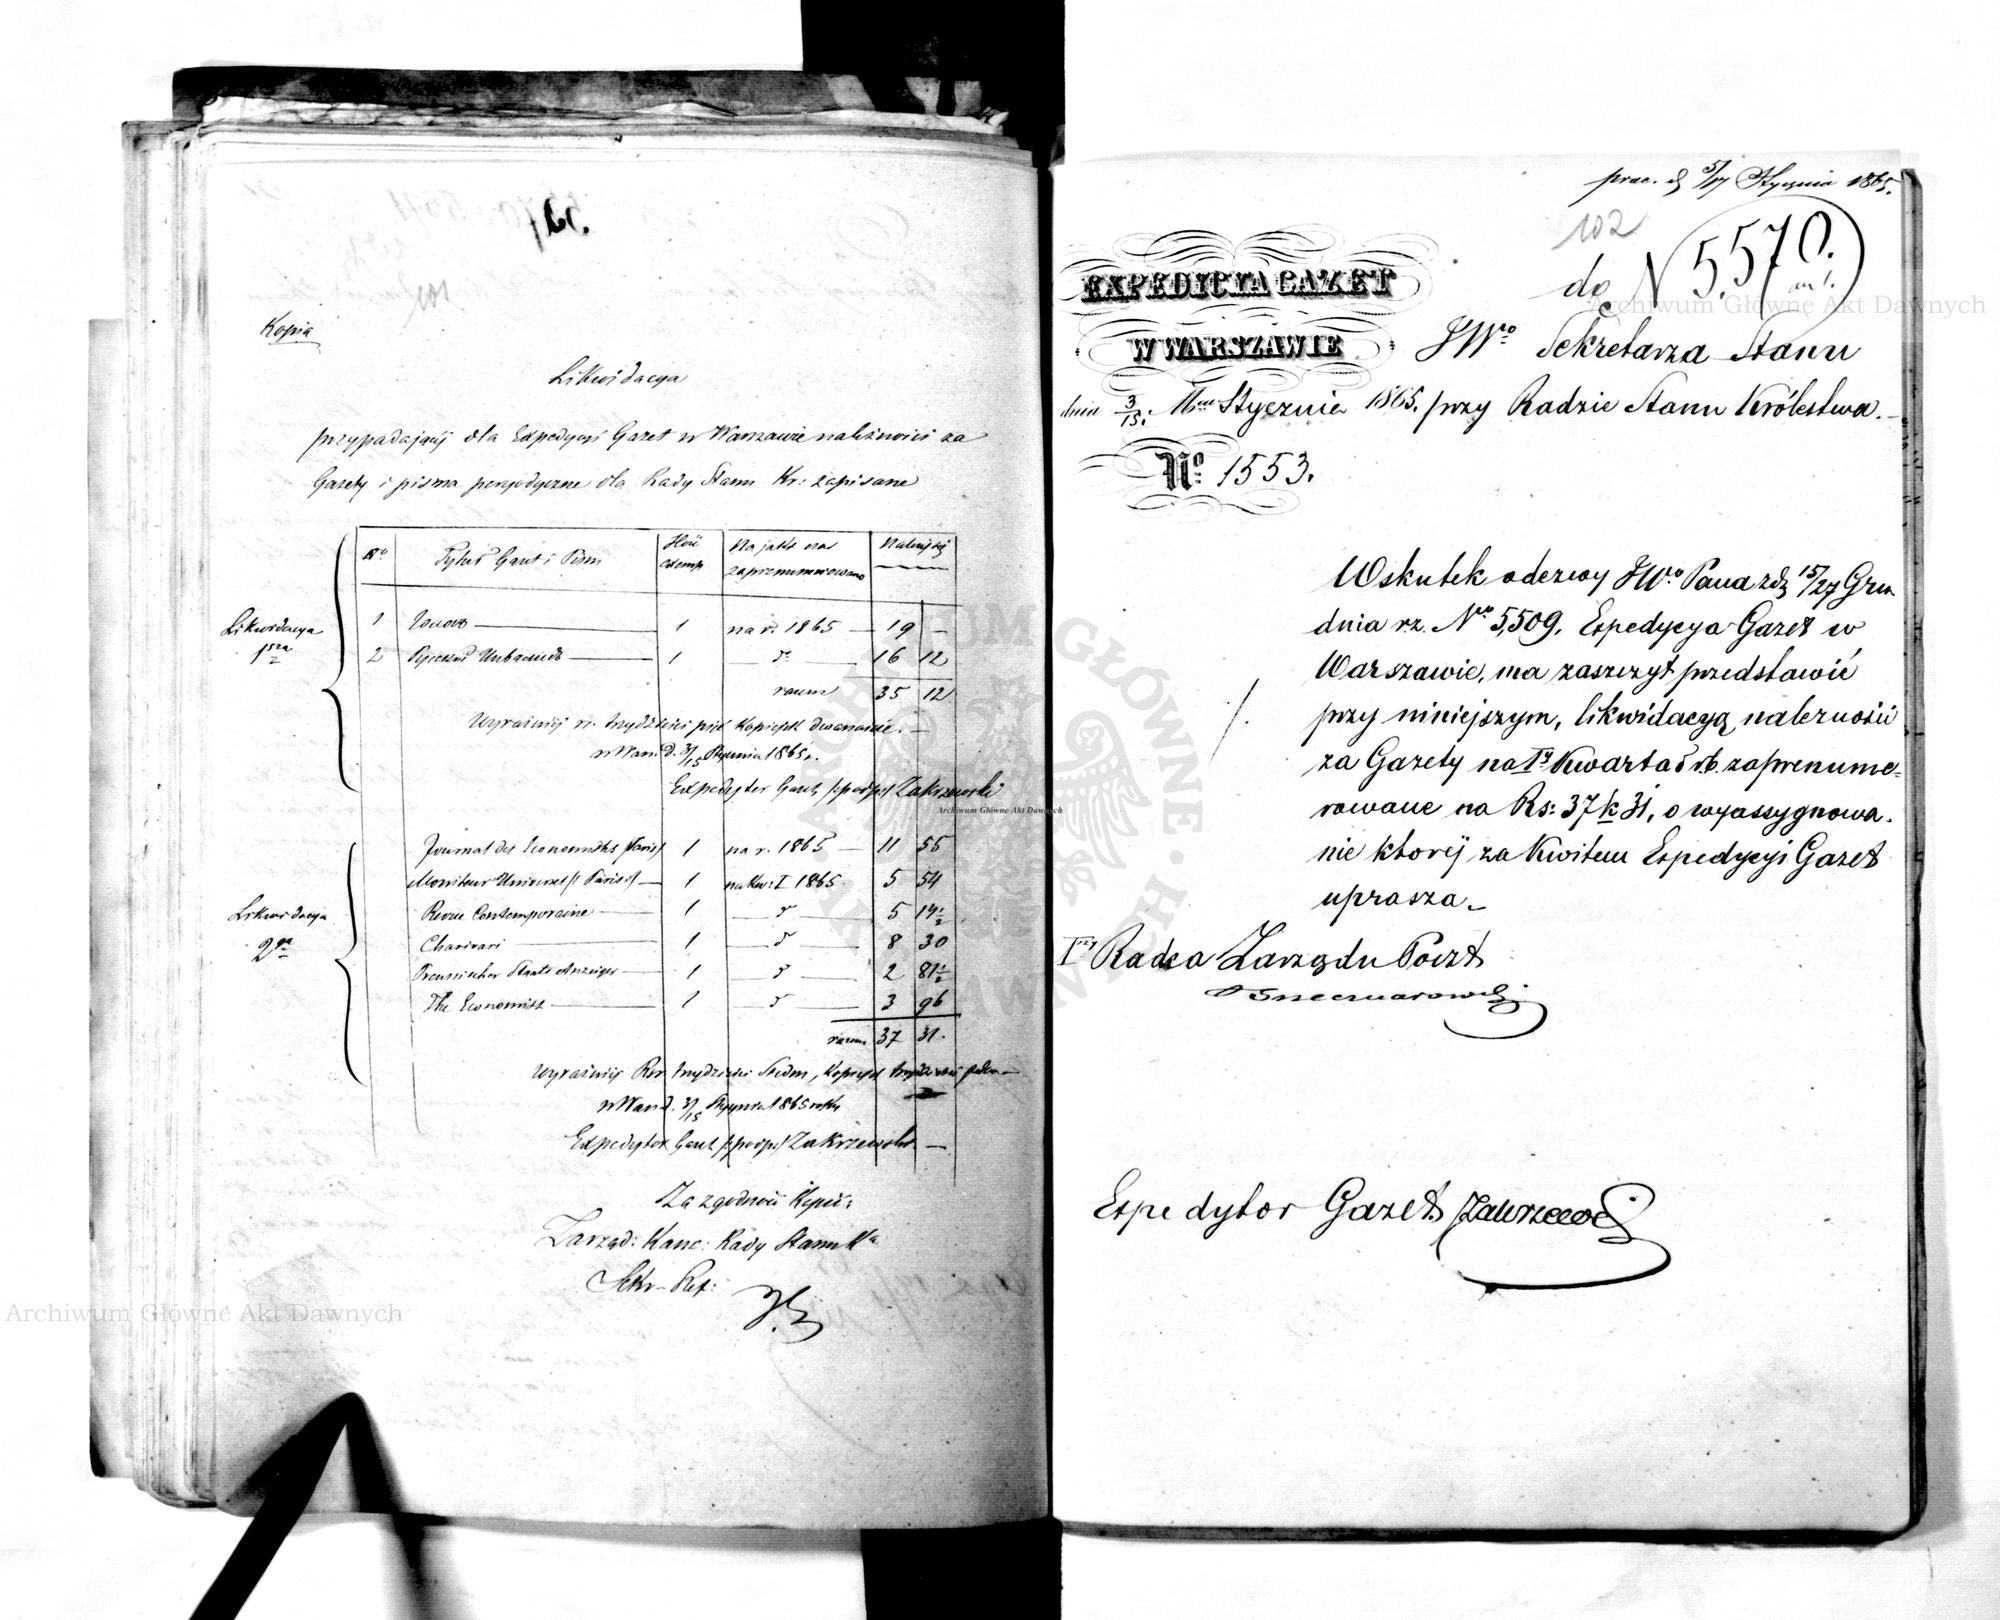 Kopia
Likwidacya
przypadającéj dla Expedycyi Gazet w Warszawie należności za
Gazety i pisma peryodyczne dla Rady Stanu Kr: zapisane
No Tytuł Gazet i Pism Ilość exemp Na jaki czas zaprenumerowano Należy się
Likwidacya 1sza
1 Голосъ 1 na r. 1865 19 —
2 Русскій Инвалидъ 1 d° 16 12
razem 35 12
Wyraźniéj rs. trzydzieści pięć kopiejek dwanaście.
w Warsz. d. 3/15 Stycznia 1865 r.
Expedytor Gazet /:podp:/ Zakrzewski
Likwidacya 2ga
Journal des Economistes /Paris/ 1 na r. 1865 11 55
Moniteur Universel /: Paris :/ 1 na Kw: I 1865 5 54
Revue Contemporaine 1 d° 5 14½
Charivari 1 d° 8 30
Preussischer Staats Anzeiger 1 d° 2 81½
The Economist 1 d° 3 96
razem 37 31.
Wyraźniéj Rsr trzydzieści Siedm, Kopiejek trzydzieści jeden
w Warsz. d. 3/15 Stycznia 1865 roku
Expedytor Gazet /:podp:/ Zakrzewski
Za zgodność Kopii:
Zarząd: Kanc: Rady Stanu Kr
Sekr. Ref:
prac. d. 5/17 Stycznia 1865.
102
do N 5.570.
EXPEDYCYA GAZET
W WARSZAWIE
JWgo Sekretarza Stanu
dnia 3/15. Stycznia 1865. przy Radzie Stanu Królestwa.
No. 1553.
Wskutek odezwy JWgo Pana z d. 15/27 Gru
dnia rz. No 5,509. Expedycya Gazet w
Warszawie, ma zaszczyt przedstawić
przy niniejszym, likwidacyą należności
za Gazety na Iy Kwartał r.b. zaprenume=
rowane na Rs: 37 k 31, o wyassygnowa-
nie któréj za Kwitem Expedycyi Gazet
uprasza.
Radca Zarządu Poczt
Expedytor Gazet Zakrzewski
Archiwum Główne Akt Dawnych
Archiwum Główne Akt Dawnych
Archiwum Główne Akt Dawnych
ARCHIWUM GŁÓWNE AKT DAWNYCH